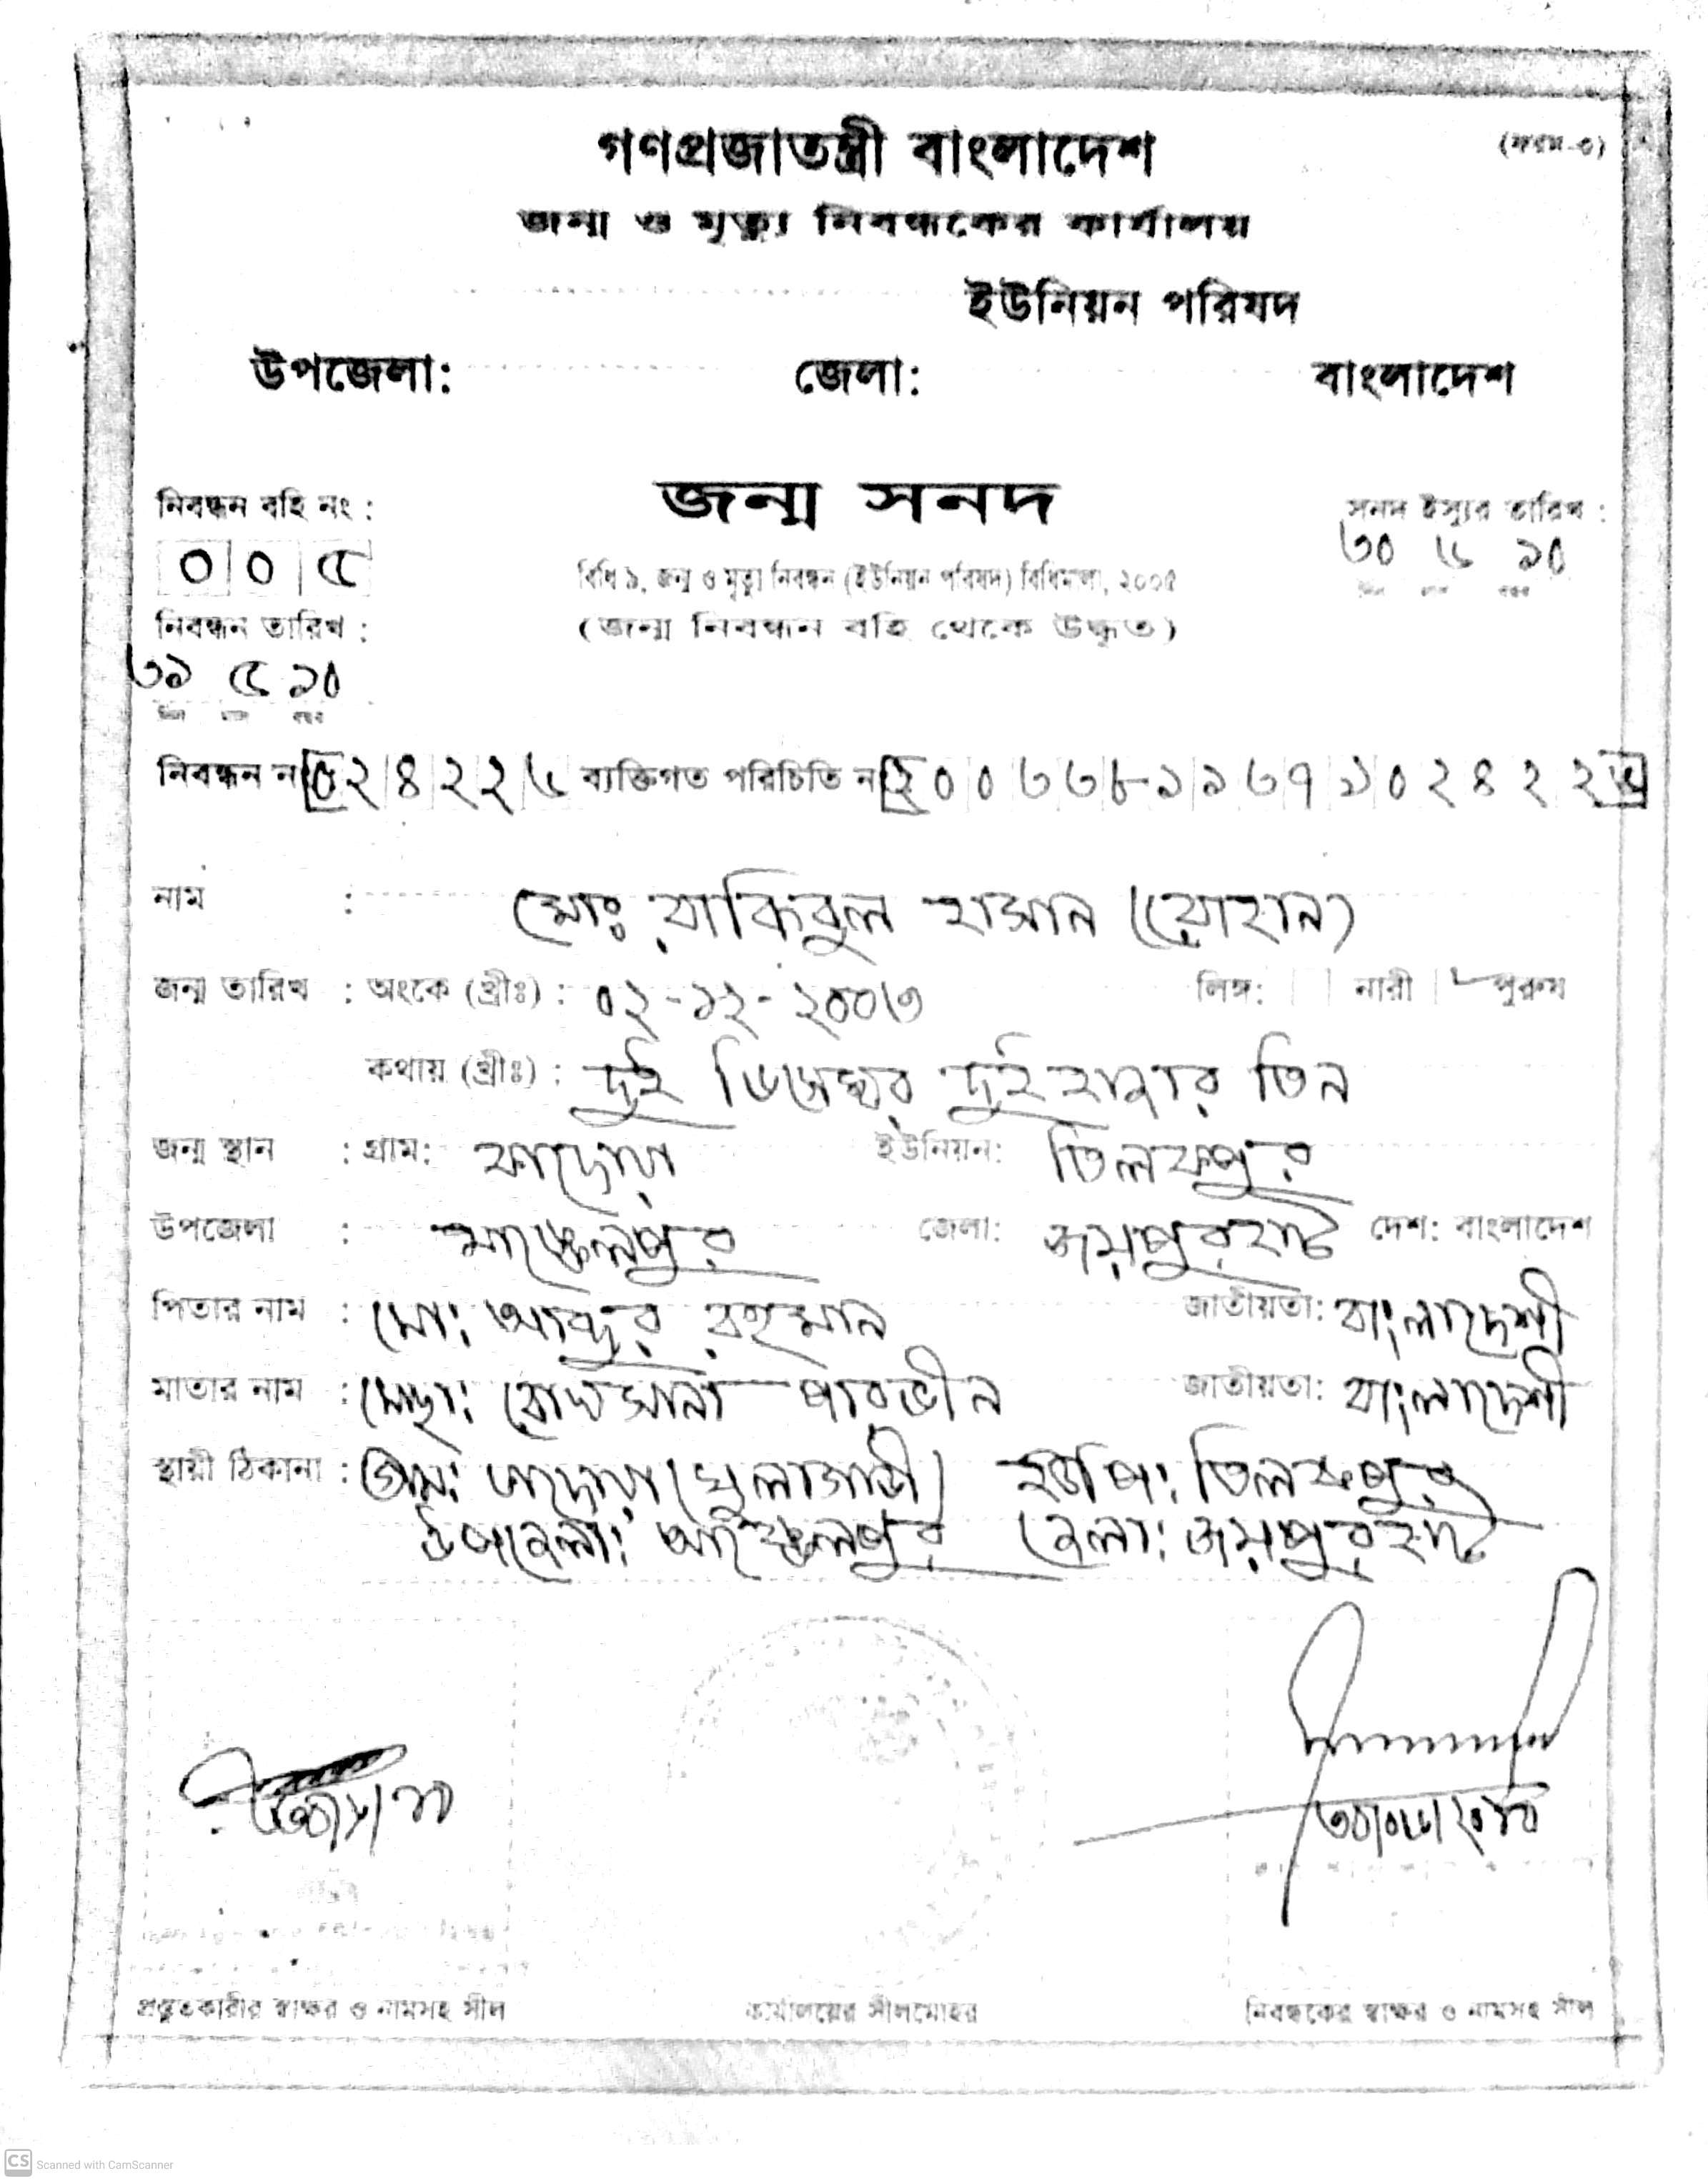 গণপ্রজাতন্ত্রী বাংলাদেশ
(ফরম-৩)
জন্ম ও মৃত্যু নিবন্ধকের কার্যালয়
ইউনিয়ন পরিষদ
উপজেলা: জেলা: বাংলাদেশ
নিবন্ধন বহি নং : জন্ম সনদ সনদ ইস্যুর তারিখ :
০ ০ ৫ ৩০ ৬ ১০
বিধি ৯, জন্ম ও মৃত্যু নিবন্ধন (ইউনিয়ন পরিষদ) বিধিমালা, ২০০৫ দিন মাস বছর
নিবন্ধন তারিখ : (জন্ম নিবন্ধন বহি থেকে উদ্ধৃত)
৩১ ৫ ১০
দিন মাস বছর
নিবন্ধন নং ০২৪২২৬ ব্যক্তিগত পরিচিতি নং ২০০৩৩৮১১৩৭১০২৪২২৬
নাম : মোঃ রাকিবুল হাসান (রোহান)
জন্ম তারিখ : অংকে (খ্রীঃ) : ০২-১২-২০০৩ লিঙ্গ: নারী পুরুষ
কথায় (খ্রীঃ) : দুই ডিসেম্বর দুই হাজার তিন
জন্ম স্থান : গ্রাম: ইউনিয়ন: তিলকপুর
উপজেলা : আক্কেলপুর জেলা: জয়পুরহাট দেশ: বাংলাদেশ
পিতার নাম : মো: আব্দুর রহমান জাতীয়তা: বাংলাদেশী
মাতার নাম : মোছা: রোখসানা পারভীন জাতীয়তা: বাংলাদেশী
স্থায়ী ঠিকানা : গ্রাম: ইউপি: তিলকপুর
উপজেলা: আক্কেলপুর জেলা: জয়পুরহাট
প্রস্তুতকারীর স্বাক্ষর ও নামসহ সীল কার্যালয়ের সীলমোহর নিবন্ধকের স্বাক্ষর ও নামসহ সীল
CS Scanned with CamScanner